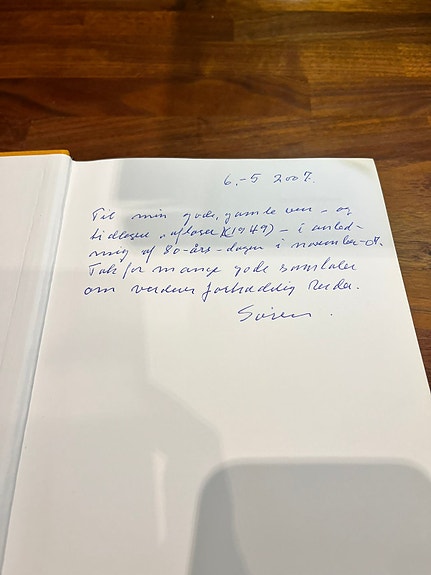 6.-5 2007.
Til min gode, gamle ven - og
tidligere "afløser" (1949) - i anled-
ning af 80-års-dagen i november-07.
Tak for mange gode samtaler
om verdens
Søren.